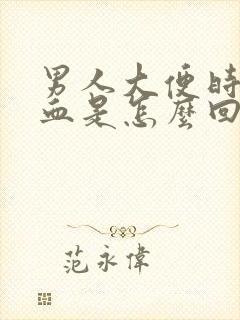 男人大便時
血是怎麼回
范永偉